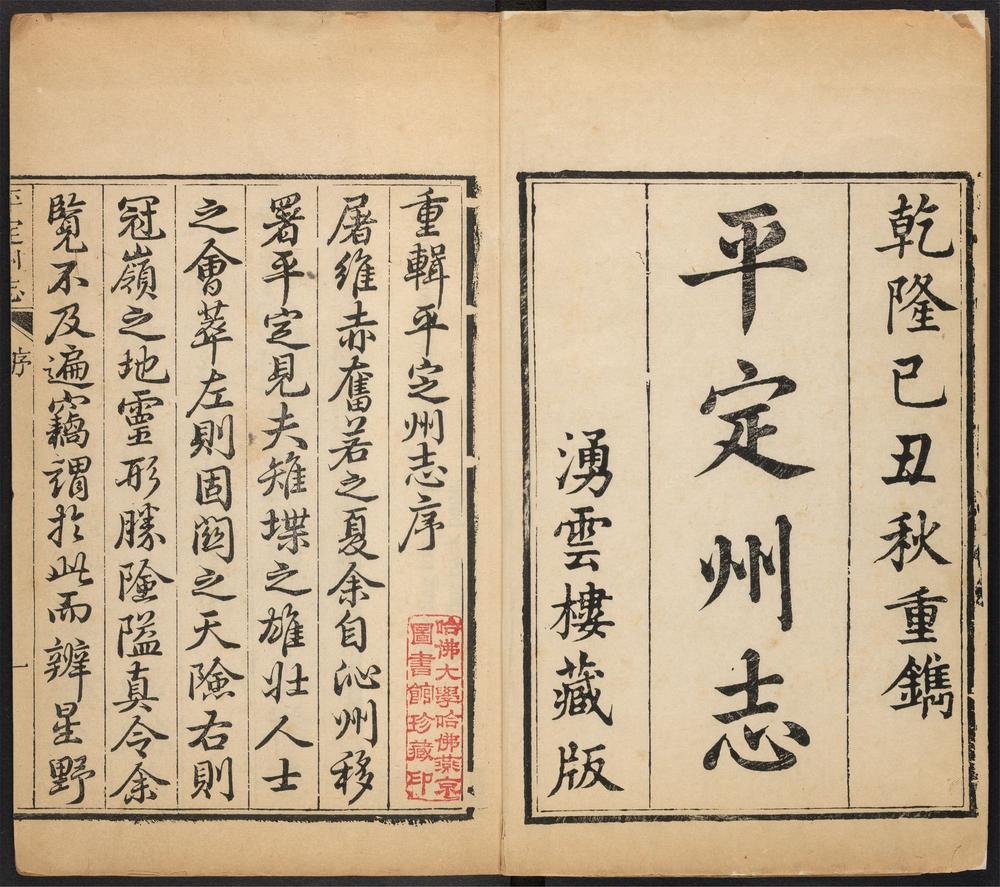 乾隆己丑秋重鐫
平定州志
湧雲樓藏版
重輯平定州志序
哈佛大學哈佛燕京
圖書館珍藏印
屠維赤奮若之夏余自沁州移
署平定見夫雉堞之雄壯人士
之會萃左則固關之天險右則
冠嶺之地靈形勝險隘真令余
覽不及遍竊謂於此而辨星野
平定州志
序
一